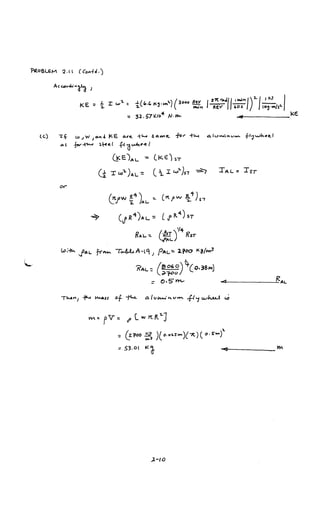 PROBLEM 2.11 (Contd.)
Accordingly,
KE = ½ I ω² = ½ (6.6 kg·m²)(3000 REV/min |2π rad/REV||1 min/60 s|)² |1 N/1 kg·m/s²|
= 32.57×10⁴ N·m KE
(c) If ω, W, and KE are the same for the aluminum flywheel
as for the steel flywheel
(KE)AL = (KE)ST
(½ I ω²)AL = (½ I ω²)ST ⇒ IAL = IST
or
(πρw R⁴/2)AL = (πρw R⁴/2)ST
⇒ (ρR⁴)AL = (ρR⁴)ST
RAL = (ρST/ρAL)^1/4 RST
With ρAL from Table A-19, ρAL = 2700 kg/m³
RAL = (8060/2700)^1/4 (0.38m)
= 0.5 m RAL
Then, the mass of the aluminum flywheel is
m = ρV = ρ[wπR²]
= (2700 kg/m³)(0.025m)(π)(0.5m)²
= 53.01 kg m
2-10